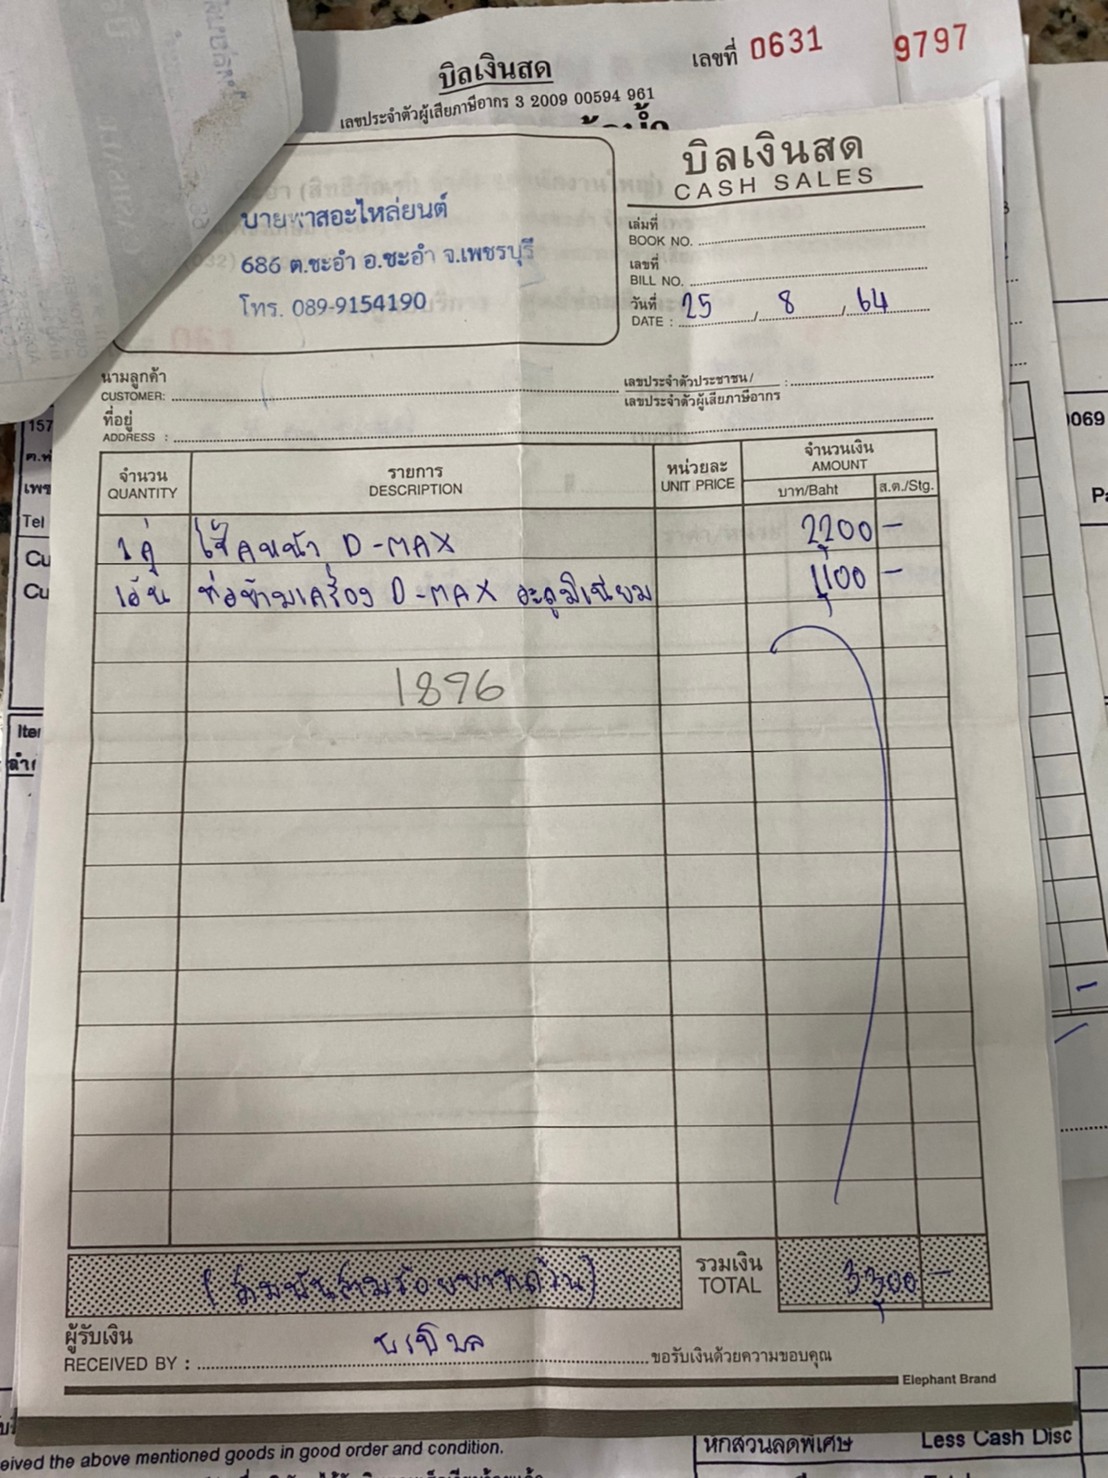 บิลเงินสด
เลขที่ 0631 9797
เลขประจำตัวผู้เสียภาษีอากร 3 2009 00594 961
บิลเงินสด
CASH SALES
บายพาสอะไหล่ยนต์
686 ต.ชะอำ อ.ชะอำ จ.เพชรบุรี
โทร. 089-9154190
เล่มที่
BOOK NO.
เลขที่
BILL NO.
วันที่
DATE : 25 / 8 / 64
นามลูกค้า
CUSTOMER:
เลขประจำตัวประชาชน/
เลขประจำตัวผู้เสียภาษีอากร
ที่อยู่
ADDRESS :
จำนวน
QUANTITY
รายการ
DESCRIPTION
หน่วยละ
UNIT PRICE
จำนวนเงิน
AMOUNT
บาท/Baht ส.ต./Stg.
1 คู่ โช๊คหน้า D-MAX 2200 -
1 เส้น ท่อข้ามเครื่อง D-MAX อะลูมิเนียม 1,100 -
1896
(สามพันสามร้อยบาทถ้วน)
รวมเงิน
TOTAL
3,300 -
ผู้รับเงิน
RECEIVED BY :
ขอรับเงินด้วยความขอบคุณ
Elephant Brand
157
Tel
Cu
Cu
0069
eived the above mentioned goods in good order and condition.
หักส่วนลดพิเศษ Less Cash Disc